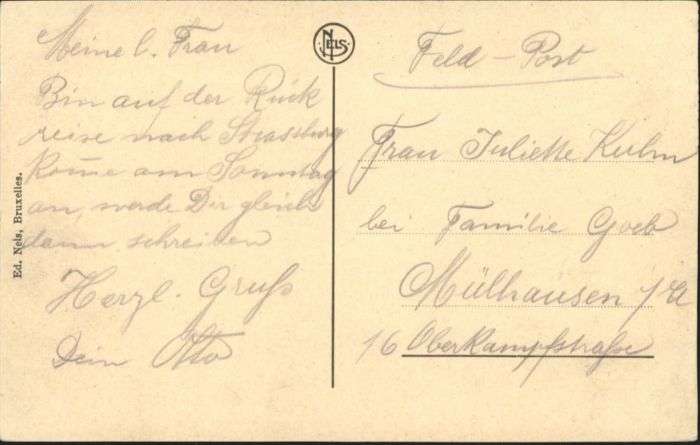 Meine l. Frau
Bin auf der Rück
reise nach Strassburg
komme am Sonntag
an, werde Dir gleich
dann schreiben
Herzl. Gruß
Dein Otto
NELS
Ed. Nels, Bruxelles.
Feld-Post
Frau Juliette Kuhn
bei Familie
Mülhausen i/E
16 Oberkampfstraße